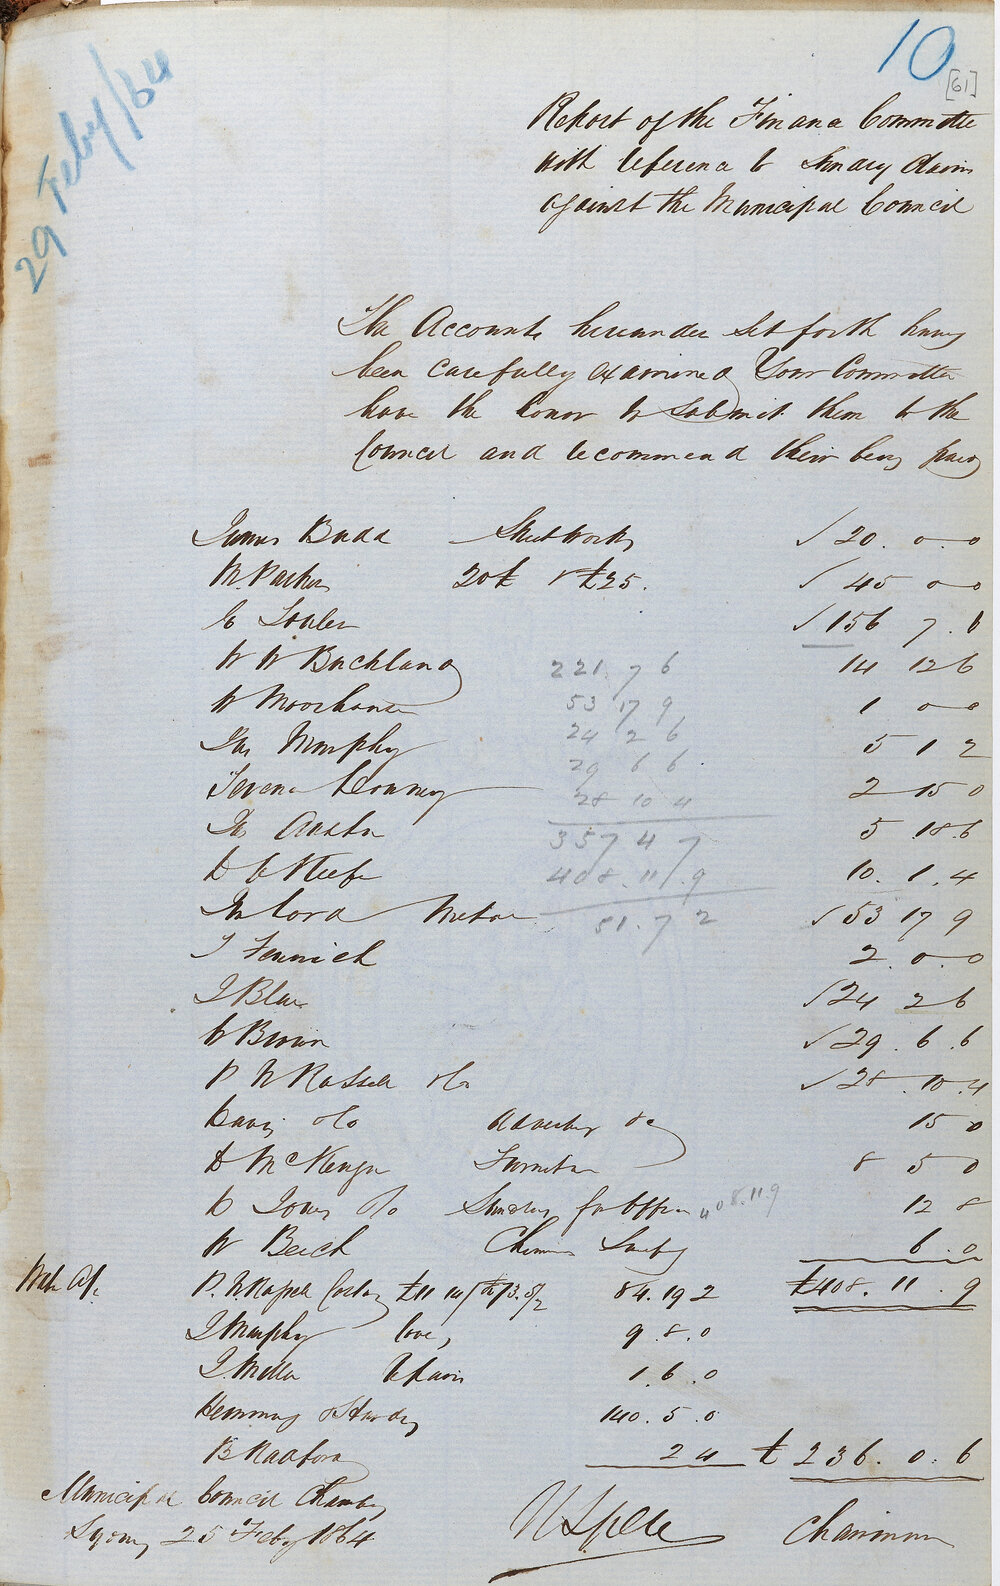 10
[61]
29 Feby/64
Report of the Finance Committee
with reference to Sundry Claims
against the Municipal Council
The Accounts hereunder set forth having
been carefully examined Your Committee
have the honor to submit them to the
Council and recommend their being paid
James Budd Street Works √ 20. 0. 0
W. Parker 20£ & £25. √ 45 0 0
E √ 156 7. 6
W W Buckland 14 12 6
221. 7 6
W Moorhouse 1 0 0
53 17 9
Jas Murphy 5 1 2
24 2 6
29 6 6.
2 15 0
28 10 4
Js Austin 5 18.6
357 4 7
D O Keefe 10. 1. 4
408. 11. 9
Jn Cord Metal √ 53 17 9
51. 7 2
J Fenwick 2. 0. 0
J Blue √ 24 2 6
W Brown √ 29. 6. 6
P N Russell & Co √ 28. 10. 4
Davis & Co Advertisg &c 15 0
D McKenzie Furniture 8 5 0
D Jones & Co Sundries for Office 12 8
408.11.9
W Beech Chimney Sweeping 6. 0
£408. 11. 9
Water A/c P. N Russell Castings 84. 19 2
J Murphy 9. 8. 0
J. Mella Repairs 1. 6. 0
Hemming & Hardy 140. 5. 0
B Radford 2 4 £ 236. 0. 6
Municipal Council Chamber
Sydney 25 Feby 1864
Chairman